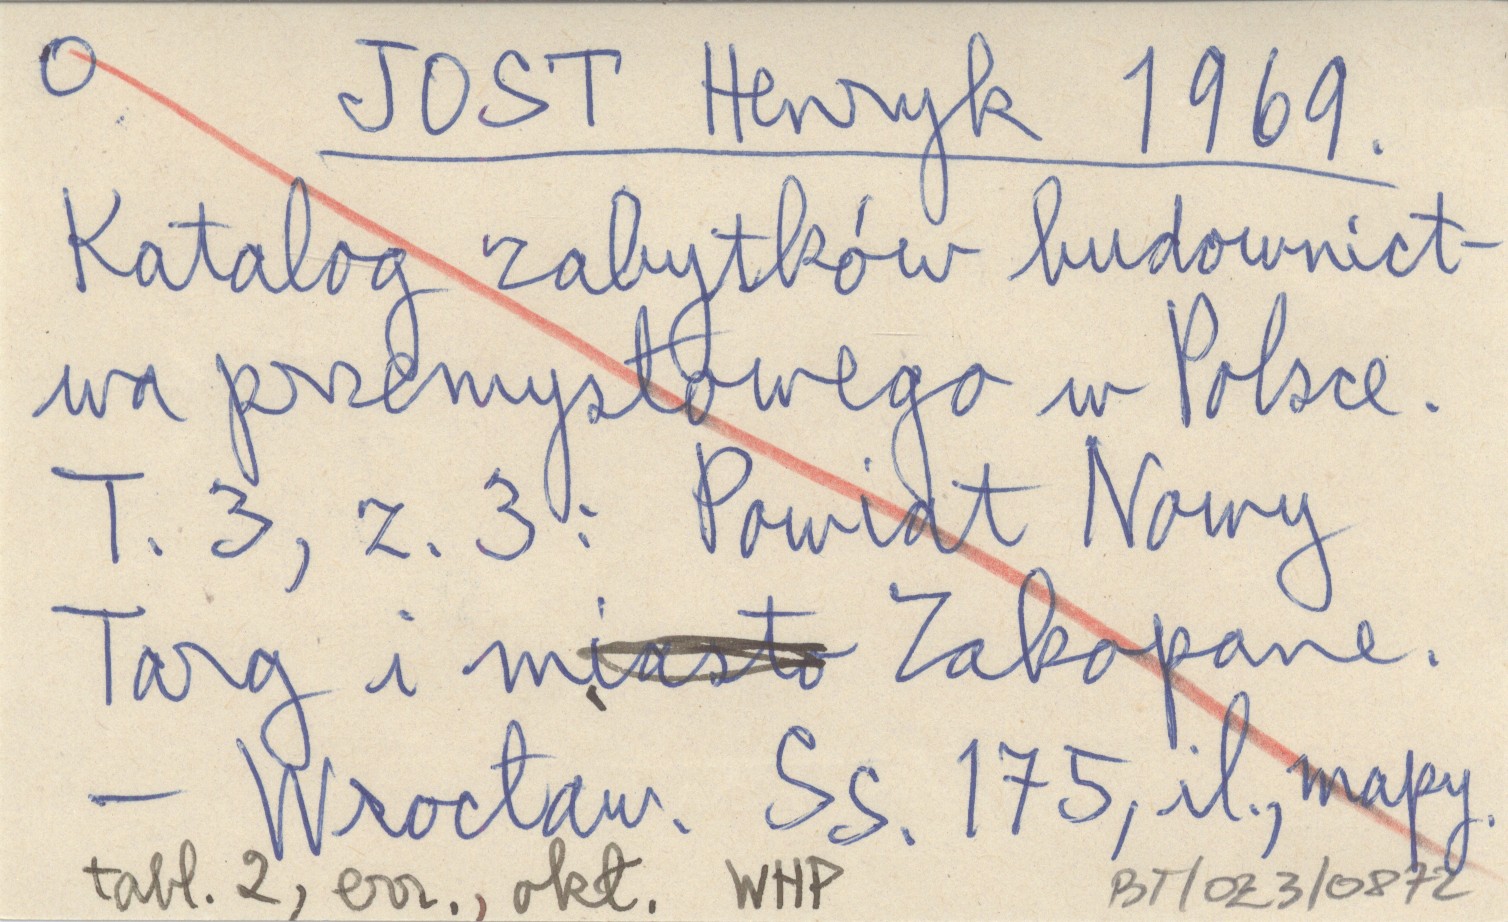 O JOST Henryk 1969.
Katalog zabytków budownict-
wa przemysłowego w Polsce.
T. 3, z. 3: Powiat Nowy
Targ i miasto Zakopane.
– Wrocław. Ss. 175, il., mapy.
tabl. 2, err., okł. WHP BT/OZ3/0872